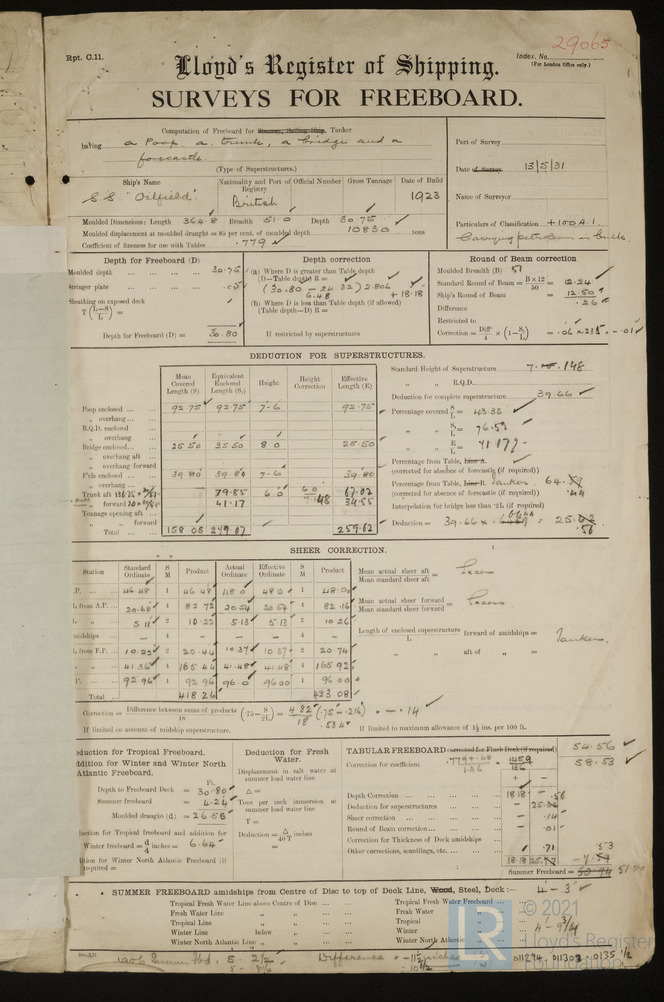 Rpt. C.11.
Index. No. 29065
(For London Office only.)
Lloyd's Register of Shipping.
SURVEYS FOR FREEBOARD.
Computation of Freeboard for Steamer, Sailing Ship, Tanker
having a Poop a trunk, a bridge and a
forecastle.
(Type of Superstructures.)
Port of Survey
Date of Survey 13/5/31
Name of Surveyor
Particulars of Classification +100 A.1
Carrying petroleum in bulk
Ship's Name
Nationality and Port of Registry
Official Number
Gross Tonnage
Date of Build
S.S "Oilfield"
British
1923
Moulded Dimensions: Length 364.8 Breadth 51.0 Depth 30.75
Moulded displacement at moulded draught = 85 per cent. of moulded depth 10830 tons
Coefficient of fineness for use with Tables .779
Depth for Freeboard (D)
Moulded depth 30.75
Stringer plate .05
Sheathing on exposed deck
T (L-S / L) =
Depth for Freeboard (D) = 30.80
Depth correction
(a) Where D is greater than Table depth
(D—Table depth) R =
(30.80 - 24.32) 2.806
6.48
+ 18.18
(b) Where D is less than Table depth (if allowed)
(Table depth—D) R =
If restricted by superstructures
Round of Beam correction
Moulded Breadth (B) 51
Standard Round of Beam = B×12/50 = 12.24
Ship's Round of Beam = 12.50
Difference .26
Restricted to
Correction = Diff/4 × (1-S₁/L) = .06 × .235 = -.01
DEDUCTION FOR SUPERSTRUCTURES.
Mean Covered Length (S)
Equivalent Enclosed Length (S₁)
Height
Height Correction
Effective Length (E)
Poop enclosed 92.75 92.75 7-6 92.75
„ overhang
R.Q.D. enclosed
„ overhang
Bridge enclosed 25.50 25.50 8 0 25.50
„ overhang aft
„ overhang forward
F'cle enclosed 39.80 39.80 7-6 39.80
„ overhang
Trunk aft 79.85 6.0 6.0/7.48 67.02
„ forward 41.17 34.55
Tonnage opening aft
„ „ forward
Total 158.05 279.07 259.62
Standard Height of Superstructure 7.148
„ „ R.Q.D.
Deduction for complete superstructure 39.66
Percentage covered S/L = 43.33
„ „ S₁/L = 76.51
„ „ E/L = 71.17%
Percentage from Table, Line A.
(corrected for absence of forecastle (if required))
Percentage from Table, Line B. Tanker. 64.
(corrected for absence of forecastle (if required))
Interpolation for bridge less than ·2L (if required)
Deduction = 39.66 × = 25.
SHEER CORRECTION.
Station
Standard Ordinate
S M
Product
Actual Ordinate
Effective Ordinate
S M
Product
A.P. 46.48 1 46.48 48.0 48.0 1 48.00
L from A.P. 20.68 4 82.72 20.54 20.54 4 82.16
L „ 5.11 2 10.22 5.13 5.13 2 10.26
Amidships - 4 - - - 4 -
L from F.P. 10.22 2 20.44 10.37 10.37 2 20.74
„ 41.36 4 165.44 41.48 41.48 4 165.92
F.P. 92.96 1 92.96 96.0 96.00 1 96.00
Total 418.26 423.08
Mean actual sheer aft / Mean standard sheer aft = Excess
Mean actual sheer forward / Mean standard sheer forward = Excess
Length of enclosed superstructure / L forward of amidships = Tanker.
„ aft of „ =
Correction = Difference between sums of products / 18 (.75 - S/2L) = 4.82/18 (.75 - .216) = - .14
.534
If limited on account of midship superstructure.
If limited to maximum allowance of 1½ ins. per 100 ft.
Deduction for Tropical Freeboard.
Addition for Winter and Winter North Atlantic Freeboard.
Ft.
Depth to Freeboard Deck = 30.80
Summer freeboard = 4.24
Moulded draught (d) = 26.56
Deduction for Tropical freeboard and addition for
Winter freeboard = d/4 inches = 6.64
Addition for Winter North Atlantic Freeboard (if required) =
Deduction for Fresh Water.
Displacement in salt water at summer load water line
Δ =
Tons per inch immersion at summer load water line
T =
Deduction = Δ/40T inches
=
TABULAR FREEBOARD corrected for Flush Deck (if required) 54.56
Correction for coefficient .779+.68/1.36 = 1.459/1.36 58.53
+ -
Depth Correction 18.18 -
Deduction for superstructures - 25.56
Sheer correction - .14
Round of Beam correction - .01
Correction for Thickness of Deck amidships
Other corrections, scantlings, etc.
18.18 25.71 -7.53
Summer Freeboard = 51.00
SUMMER FREEBOARD amidships from Centre of Disc to top of Deck Line, Wood, Steel, Deck:— 4-3
Tropical Fresh Water Line above Centre of Disc
Fresh Water Line „ „
Tropical Line „ „
Winter Line below „
Winter North Atlantic Line „ „
Tropical Fresh Water Freeboard
Fresh Water „
Tropical „
Winter „ 4-9¾
Winter North Atlantic „
1906 Summer Fbd. 5-2½ Difference = -11½ inches
-10½
© 2021
LR
Lloyd's Register
Foundation
011294-011302-0135 1/2